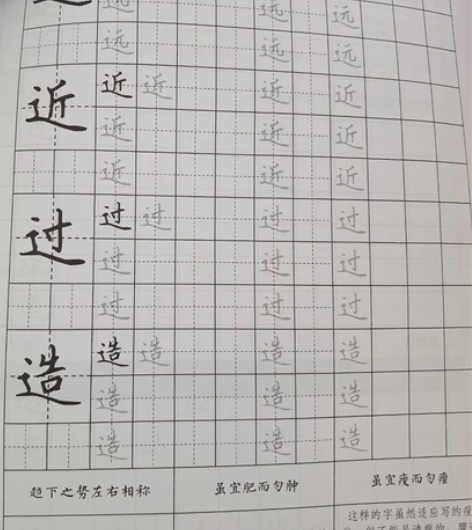 远 远
远 远 远
近 近 近 近 近
近 近 近
近 近 近
过 过 过 过 过
过 过 过
过 过 过
造 造 造 造 造
造 造 造
造 造 造
趋下之势左右相称
虽宜肥而勿肿
虽宜瘦而勿瘠
这样的字虽然适应写的瘦